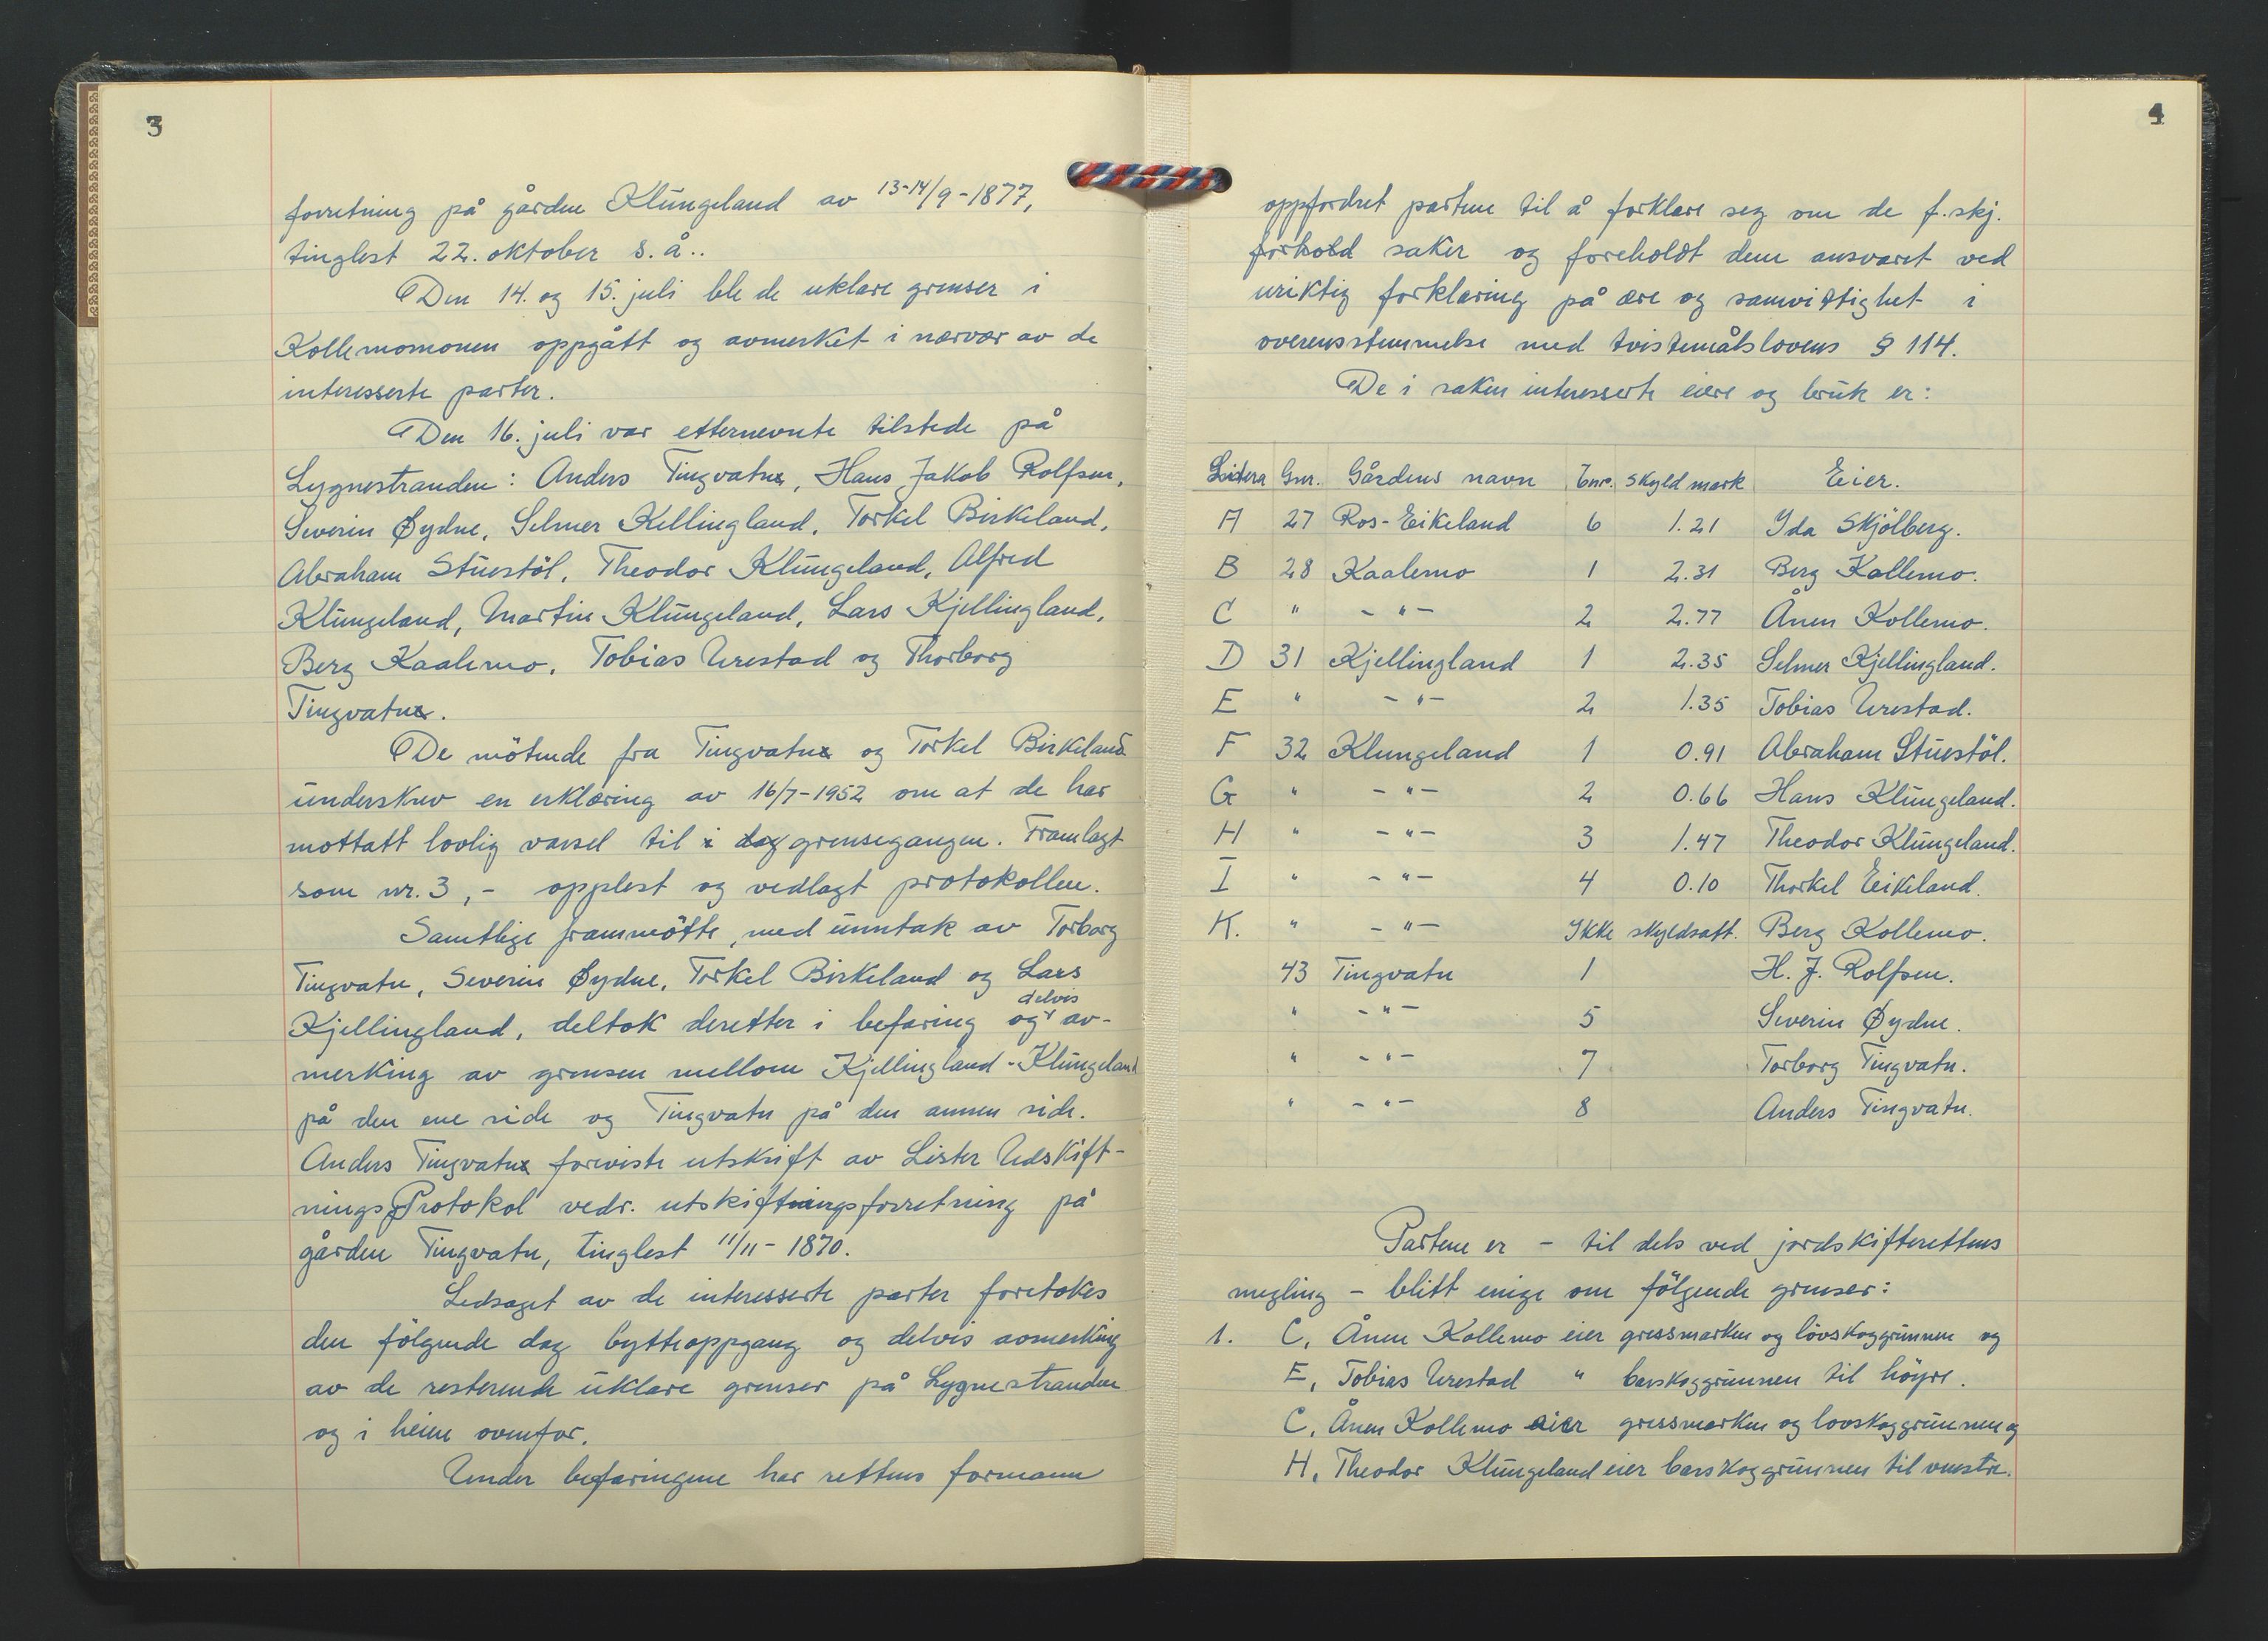 3
forretning på gården Klungeland av 13-14/9-1877,
tinglest 22. oktober s.å..
Den 14. og 15. juli ble de uklare grenser i
Kollemomonen oppgått og avmerket i nærvær av de
interesserte parter.
Den 16. juli var etternevnte tilstede på
Lygnestranden: Anders Tingvatn, Hans Jakob Rolfsen,
Severin Øydne, Selmer Kellingland, Torkel Birkeland,
Abraham Stuestöl, Theodor Klungeland, Alfred
Klungeland, Martin Klungeland, Lars Kjellingland,
Berg Kaalemo, Tobias Urestad og Thorborg
Tingvatn.
De mötende fra Tingvatn og Torkel Birkeland
underskrev en erklæring av 16/7-1952 om at de har
mottatt lovlig varsel til i dag grensegangen. Framlagt
som nr. 3,- opplest og vedlagt protokollen.
Samtlige frammötte, med unntak av Torborg
Tingvatn, Severin Øydne, Torkel Birkeland og Lars
Kjellingland, deltok deretter i befaring og delvis av-
merking av grensen mellom Kjellingland-Klungeland
på den ene side og Tingvatn på den annen side.
Anders Tingvatn foreviste utskrift av Lister Udskift-
nings Protokol vedr. utskiftningsforretning på
gården Tingvatn, tinglest 11/11-1870.
Ledsaget av de interesserte parter foretokes
den fölgende dag bytteoppgang og delvis avmerking
av de resterende uklare grenser på Lygnestranden
og i heien ovenfor.
Under befaringene har rettens formann
4
oppfordret partene til å forklare seg om de f.skj.
forhold saker og foreholdt dem ansvaret ved
uriktig forklaring på ære og samvittighet i
overensstemmelse med tvistemålslovens § 114.
De i saken interesserte eiere og bruk er:
Litera Gnr. Gårdens navn bnr. Skyld mark Eier.
A 27 Ros-Eikeland 6 1.21 Yda Skjölberg.
B 28 Kaalemo 1 2.31 Berg Kollemo.
C " - " - 2 2.77 Ånen Kollemo.
D 31 Kjellingland 1 2.35 Selmer Kjellingland.
E " - " - 2 1.35 Tobias Urestad.
F 32 Klungeland 1 0.91 Abraham Stuestöl.
G " - " - 2 0.66 Hans Klungeland.
H " - " - 3 1.47 Theodor Klungeland.
I " - " - 4 0.10 Thorkel Eikeland.
K. " - " - Ikke skyldsatt. Berg Kollemo.
43 Tingvatn 1 H. J. Rolfsen.
" - " - 5 Severin Øydne.
" - " - 7 Torborg Tingvatn.
" - " - 8 Anders Tingvatn.
Partene er - til dels ved jordskifterettens
megling - blitt enige om fölgende grenser:
1. C, Ånen Kollemo eier gressmarken og lövskoggrunnen og
E, Tobias Urestad " barskoggrunnen til höyre.
C, Ånen Kollemo eier gressmarken og lövskoggrunnen og
H, Theodor Klungeland eier barskoggrunnen til venstre.